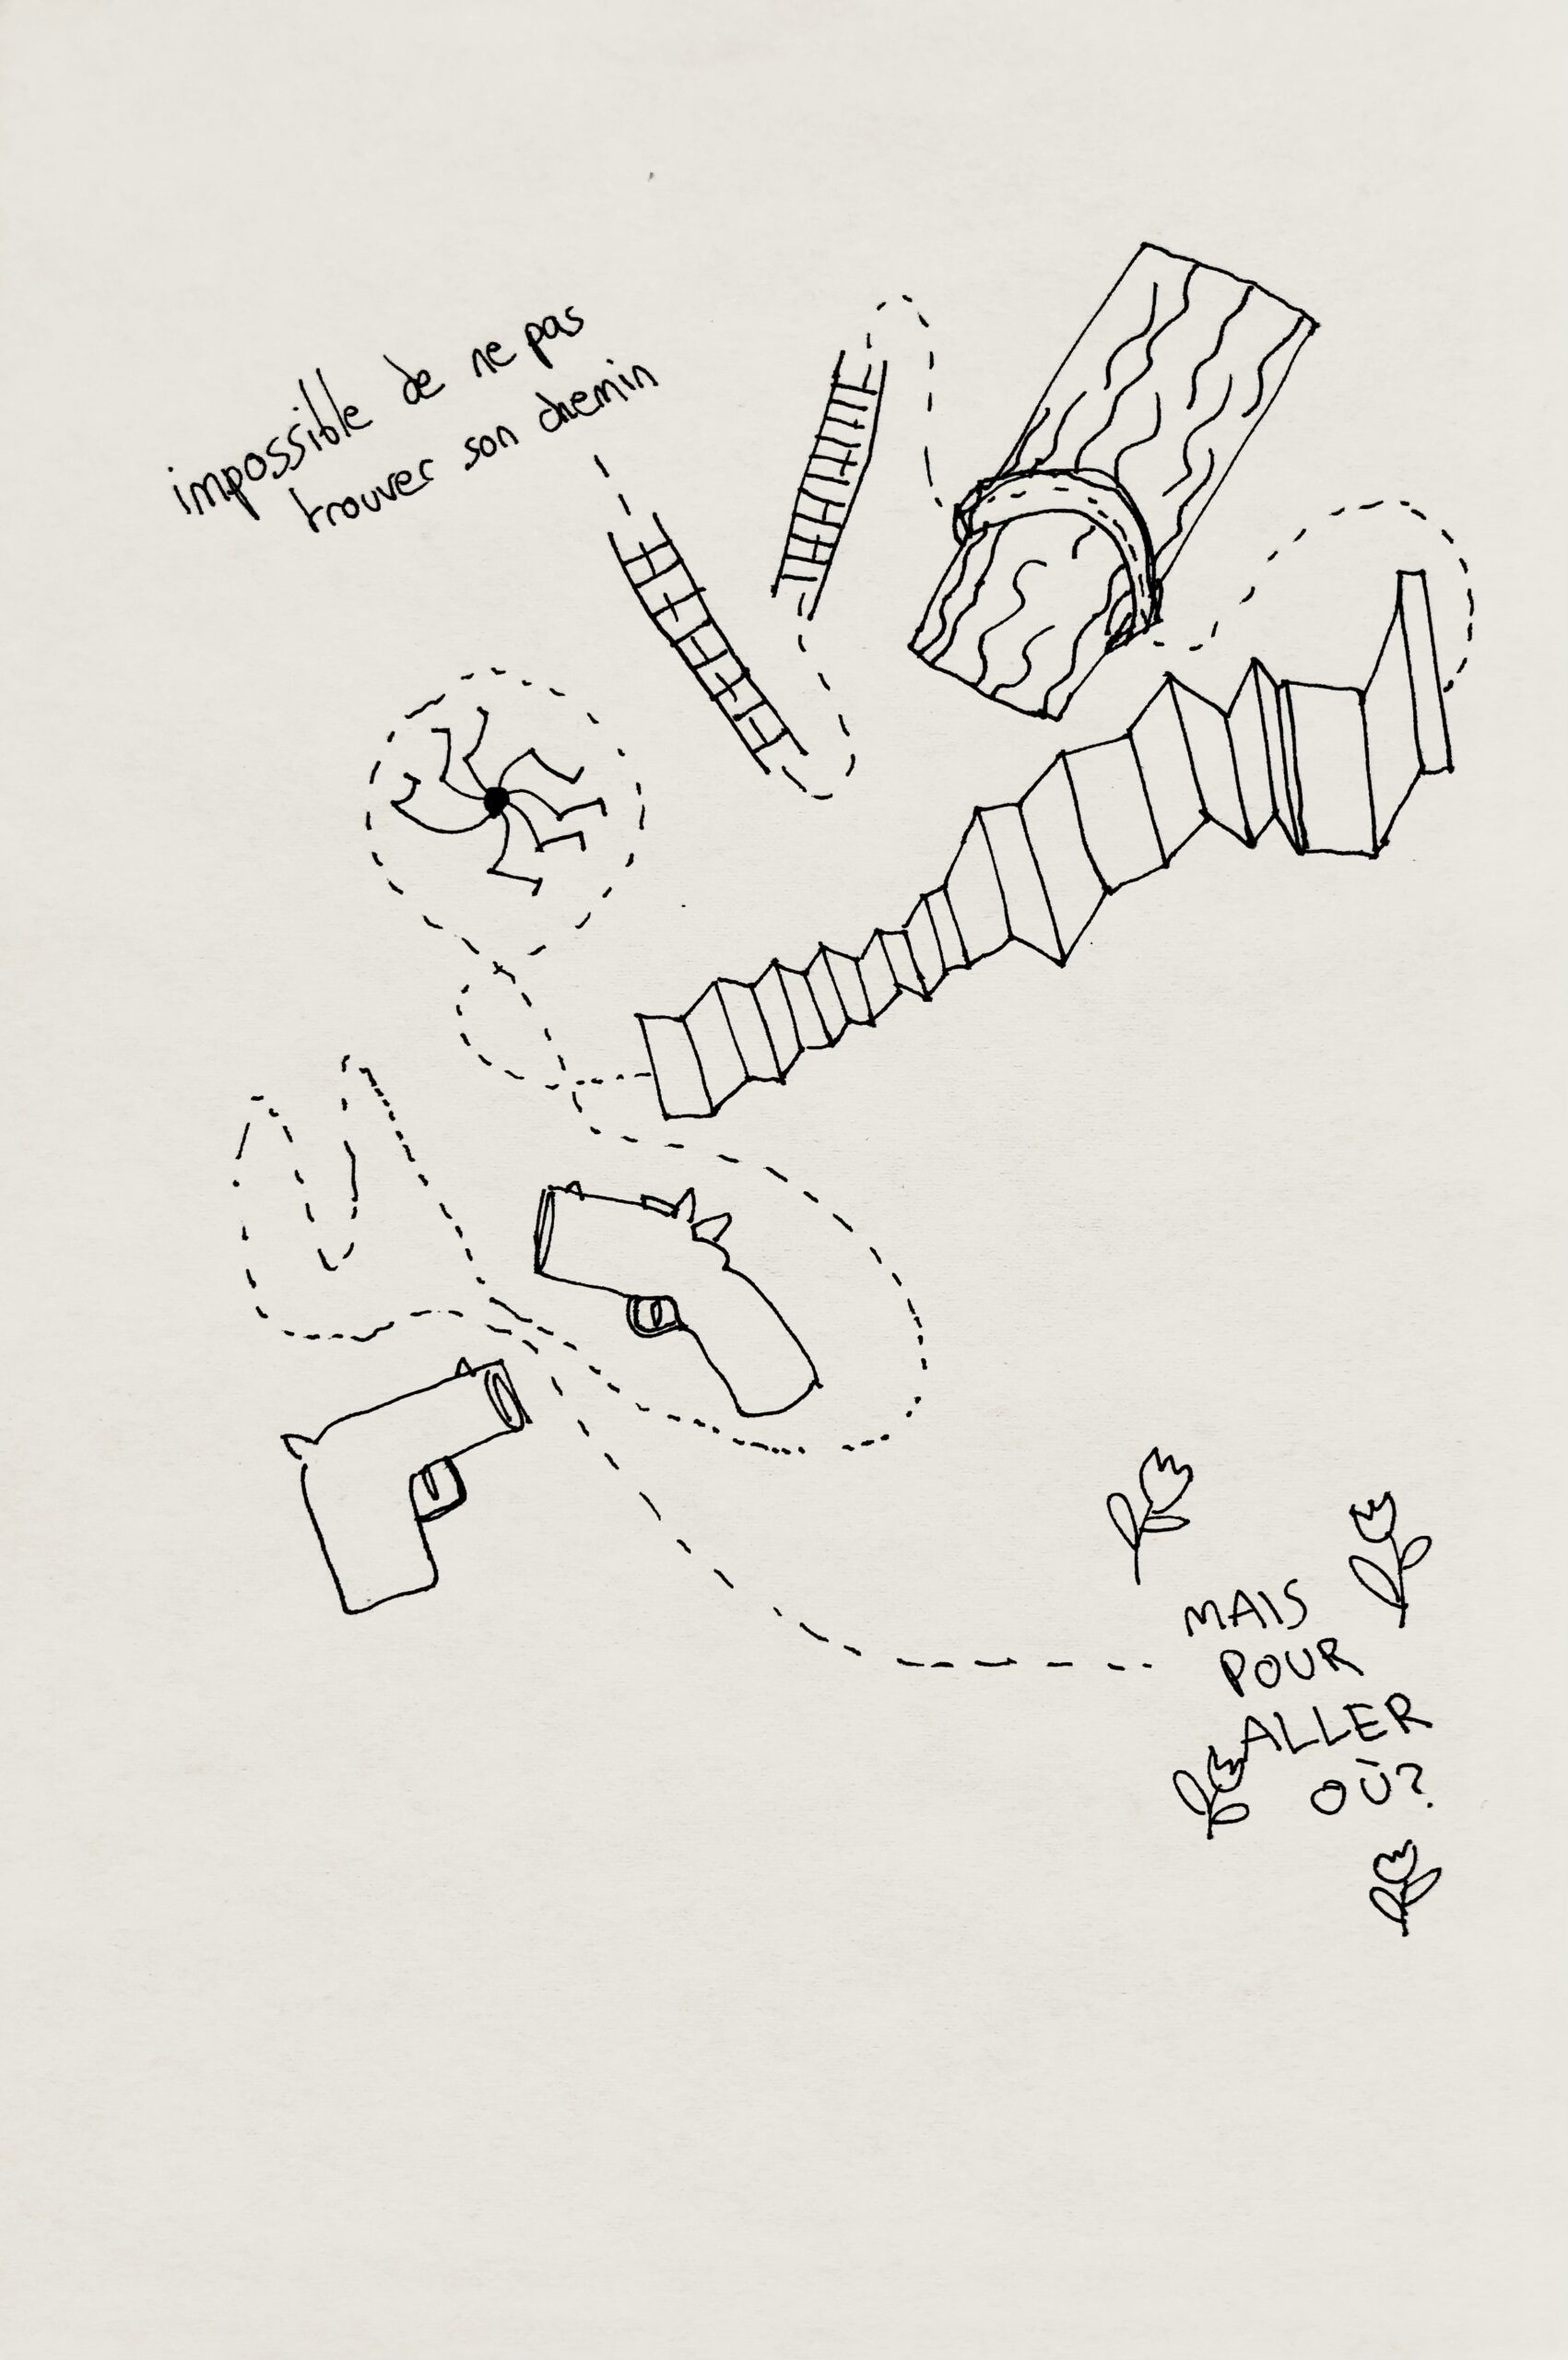 impossible de ne pas
trouver son chemin
MAIS
POUR
ALLER
OÙ?